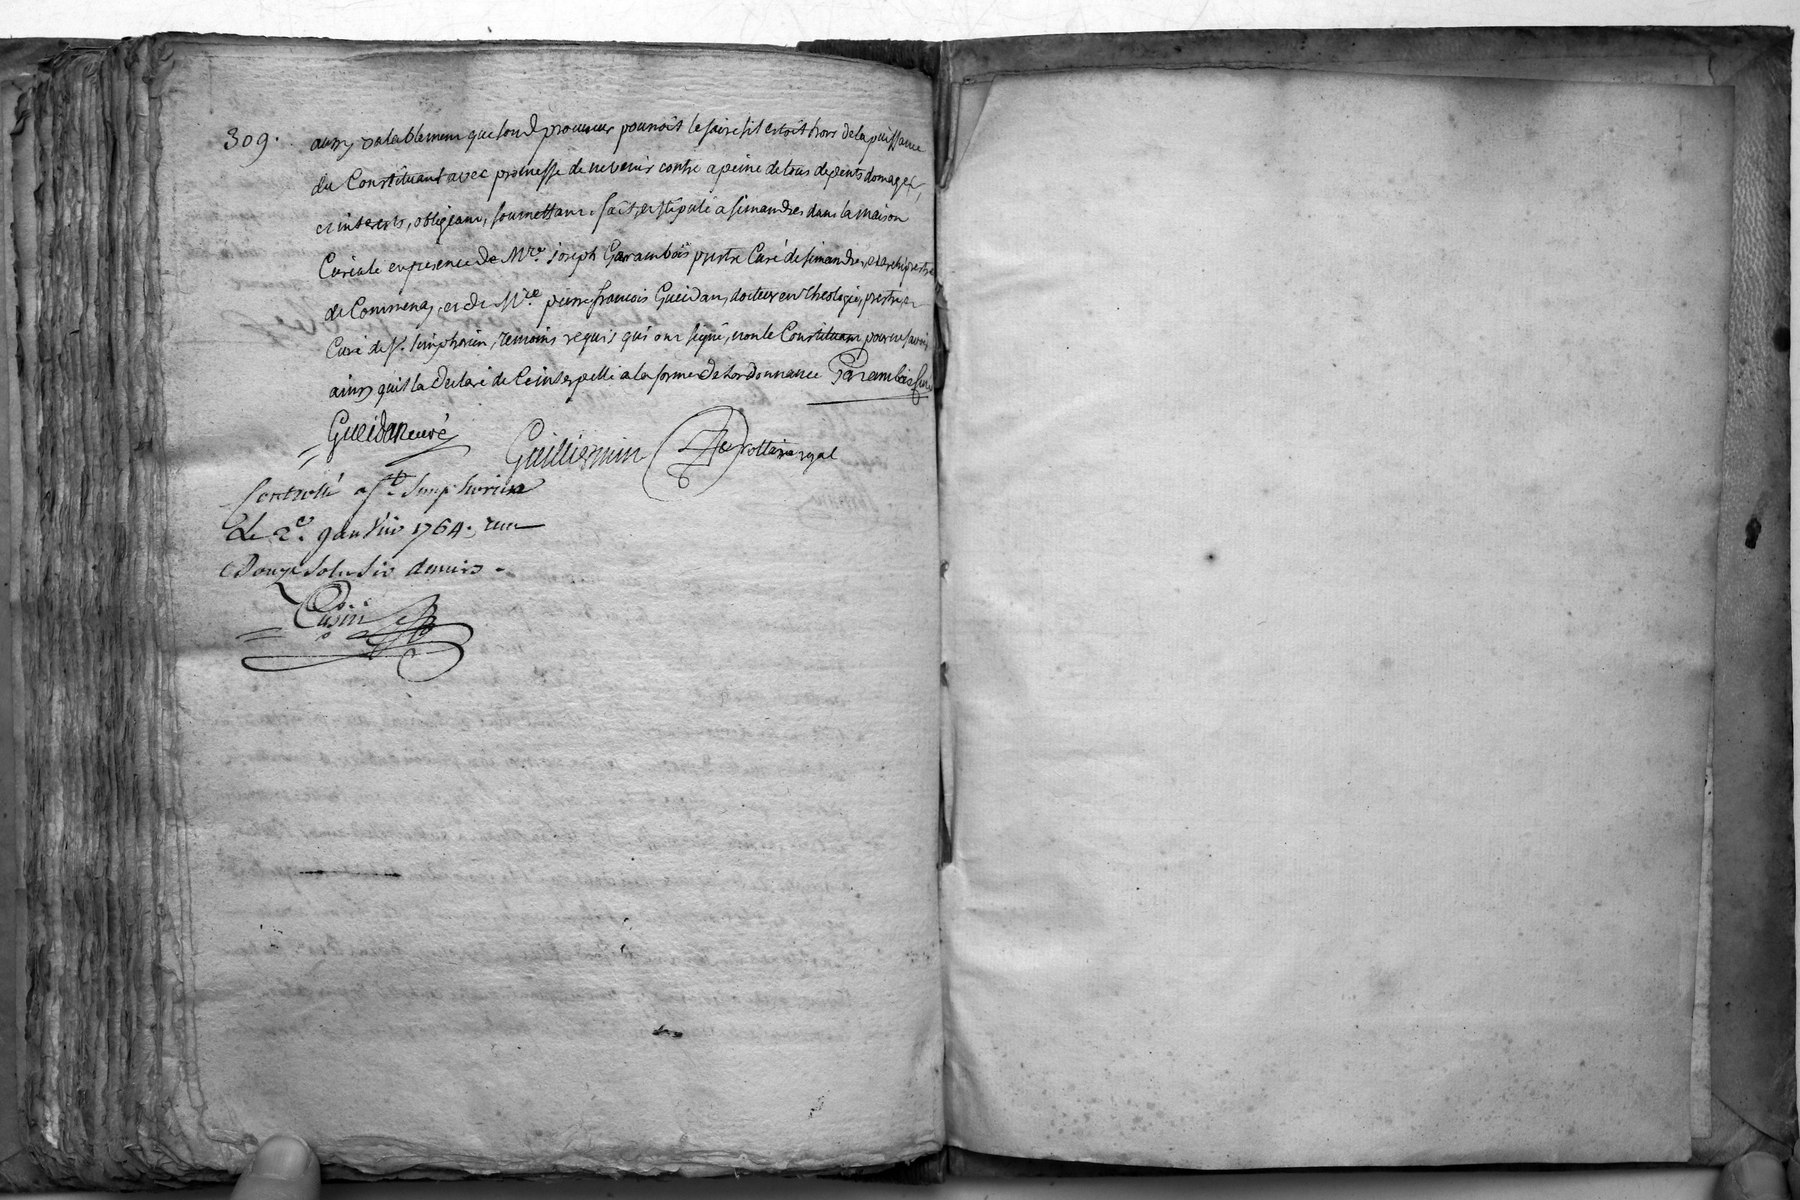 309. aussy valablement que son d procureur pourroit le faire sil estoit hors de la puissance
du Constituant avec promesse de ne venir contre a peine de tous depents domages,
et interests, obligeant, soumettant, fait et stipulé a simandres dans la maison
Curiale en presence de Mre. joseph Garambois prestre Curé de simandres et archiprestre
de Commenay, et de Mre. pierre francois Gueidan, docteur en theologie, prestre, et
Curé de st. simphorien, temoins requis qui ont signé, non le Constituant pour ne savoir
ainsy quil la declaré de ce interpellé a la forme de lordonnance Garambois curé
Gueidan curé
Guilliermin nottaire royal
Controllé a st. Simphorien
Le 2e. Janvier 1764. reçu
Douze sols six deniers.
Cusin